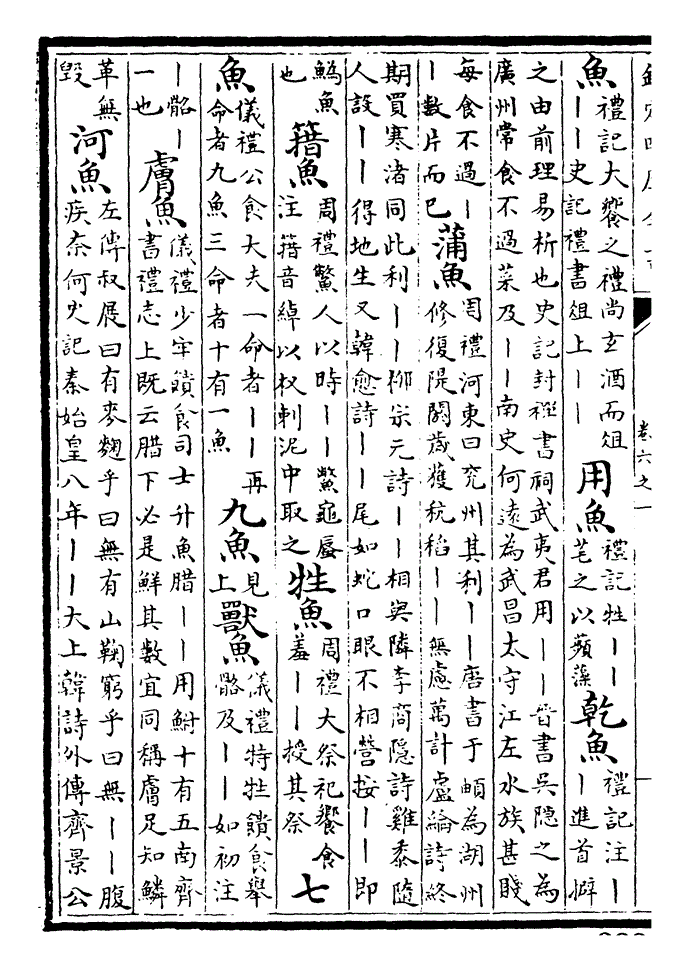 卷六之一
魚禮記大饗之禮尚玄酒而俎
——史記禮書俎上——
用魚禮記牲——
芼之以蘋藻
乾魚禮記注—
—進首
之由前理易析也史記封禪書祠武夷君用——晉書吳隱之為
廣州常食不過菜及——南史何遠為武昌太守江左水族甚賤
每食不過—
—數片而已
蒲魚周禮河東曰兖州其利——唐書于頔為湖州
修復隄閼歲獲秔稻——無慮萬計盧綸詩終
期買寒渚同此利——柳宗元詩——相與隣李商隱詩雞黍隨
人設——得地生又韓愈詩——尾如蛇口眼不相營按——即
魚
也
籍魚周禮鱉人以時——鱉龜蜃
注籍音綽以杈刺泥中取之
牲魚周禮大祭祀饗食
羞——授其祭
七
魚儀禮公食大夫一命者——再
命者九魚三命者十有一魚
九魚見
上
獸魚儀禮特牲饋食舉
骼及——如初注
—骼—
一也
膚魚儀禮少牢饋食司士升魚腊——用鮒十有五南齊
書禮志上既云腊下必是鮮其數宜同稱膚足知鱗
革無
毀
河魚左傳叔展曰有麥麴乎曰無有山鞠窮乎曰無——腹
疾奈何史記秦始皇八年——大上韓詩外傳齊景公